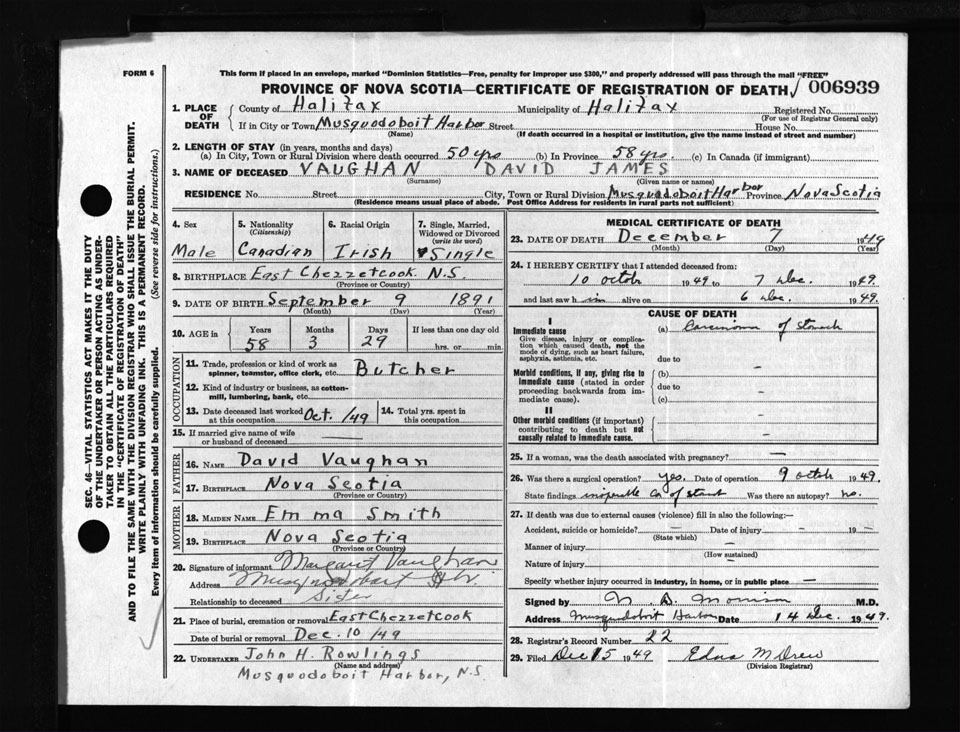 FORM 6
This form if placed in an envelope, marked "Dominion Statistics—Free, penalty for improper use $300," and properly addressed will pass through the mail "FREE"
PROVINCE OF NOVA SCOTIA—CERTIFICATE OF REGISTRATION OF DEATH 006939
1. PLACE OF DEATH County of Halifax Municipality of Halifax Registered No.
(For use of Registrar General only)
If in City or Town Musquodoboit Harbor Street House No.
(Name) (If death occurred in a hospital or institution, give the name instead of street and number)
2. LENGTH OF STAY (in years, months and days)
(a) In City, Town or Rural Division where death occurred 50 yrs (b) In Province 58 yrs. (c) In Canada (if immigrant)
3. NAME OF DECEASED VAUGHAN DAVID JAMES
(Surname) (Given name or names)
RESIDENCE No. Street City, Town or Rural Division Musquodoboit Harbor Province Nova Scotia
(Residence means usual place of abode. Post Office Address for residents in rural parts not sufficient)
4. Sex Male
5. Nationality (Citizenship) Canadian
6. Racial Origin Irish
7. Single, Married, Widowed or Divorced (write the word) Single
8. BIRTHPLACE East Chezzetcook N.S.
(Province or Country)
9. DATE OF BIRTH September 9 1891
(Month) (Day) (Year)
10. AGE in Years 58 Months 3 Days 29 If less than one day old hrs. or min.
OCCUPATION
11. Trade, profession or kind of work as spinner, teamster, office clerk, etc. Butcher
12. Kind of industry or business, as cotton-mill, lumbering, bank, etc.
13. Date deceased last worked at this occupation Oct. /49
14. Total yrs. spent in this occupation
15. If married give name of wife or husband of deceased
FATHER
16. NAME David Vaughan
17. BIRTHPLACE Nova Scotia
(Province or Country)
MOTHER
18. MAIDEN NAME Emma Smith
19. BIRTHPLACE Nova Scotia
(Province or Country)
20. Signature of informant Margaret Vaughan
Address Musquodoboit Hbr.
Relationship to deceased Sister
21. Place of burial, cremation or removal East Chezzetcook
Date of burial or removal Dec. 10 /49
22. UNDERTAKER John H. Rowlings
(Name and address)
Musquodoboit Harbor, N.S.
MEDICAL CERTIFICATE OF DEATH
23. DATE OF DEATH December 7 1949
(Month) (Day) (Year)
24. I HEREBY CERTIFY that I attended deceased from:
10 octobr 1949 to 7 Dec. 1949.
and last saw him alive on 6 Dec. 1949.
CAUSE OF DEATH
I
Immediate cause (a) Carcinoma of stomach
Give disease, injury or complication which caused death, not the mode of dying, such as heart failure, asphyxia, asthenia, etc.
due to
Morbid conditions, if any, giving rise to immediate cause (stated in order proceeding backwards from immediate cause).
(b) —
due to —
(c)
II
Other morbid conditions (if important) contributing to death but not causally related to immediate cause. —
25. If a woman, was the death associated with pregnancy? —
26. Was there a surgical operation? yes. Date of operation 9 octob 1949.
State findings inoperable Ca of stomach Was there an autopsy? no.
27. If death was due to external causes (violence) fill in also the following:—
Accident, suicide or homicide? — Date of injury — 19 —
(State which)
Manner of injury —
(How sustained)
Nature of injury —
Specify whether injury occurred in industry, in home, or in public place —
Signed by N. B. Morrison M.D.
Address Musquodoboit Harbor Date 14 Dec. 1949.
28. Registrar's Record Number 22
29. Filed Dec 15 1949 Edna M Drew
(Division Registrar)
SEC. 46—VITAL STATISTICS ACT MAKES IT THE DUTY
OF THE UNDERTAKER OR PERSON ACTING AS UNDER-
TAKER TO OBTAIN ALL THE PARTICULARS REQUIRED
IN THE "CERTIFICATE OF REGISTRATION OF DEATH"
AND TO FILE THE SAME WITH THE DIVISION REGISTRAR WHO SHALL ISSUE THE BURIAL PERMIT.
WRITE PLAINLY WITH UNFADING INK. THIS IS A PERMANENT RECORD.
Every item of information should be carefully supplied. (See reverse side for instructions.)